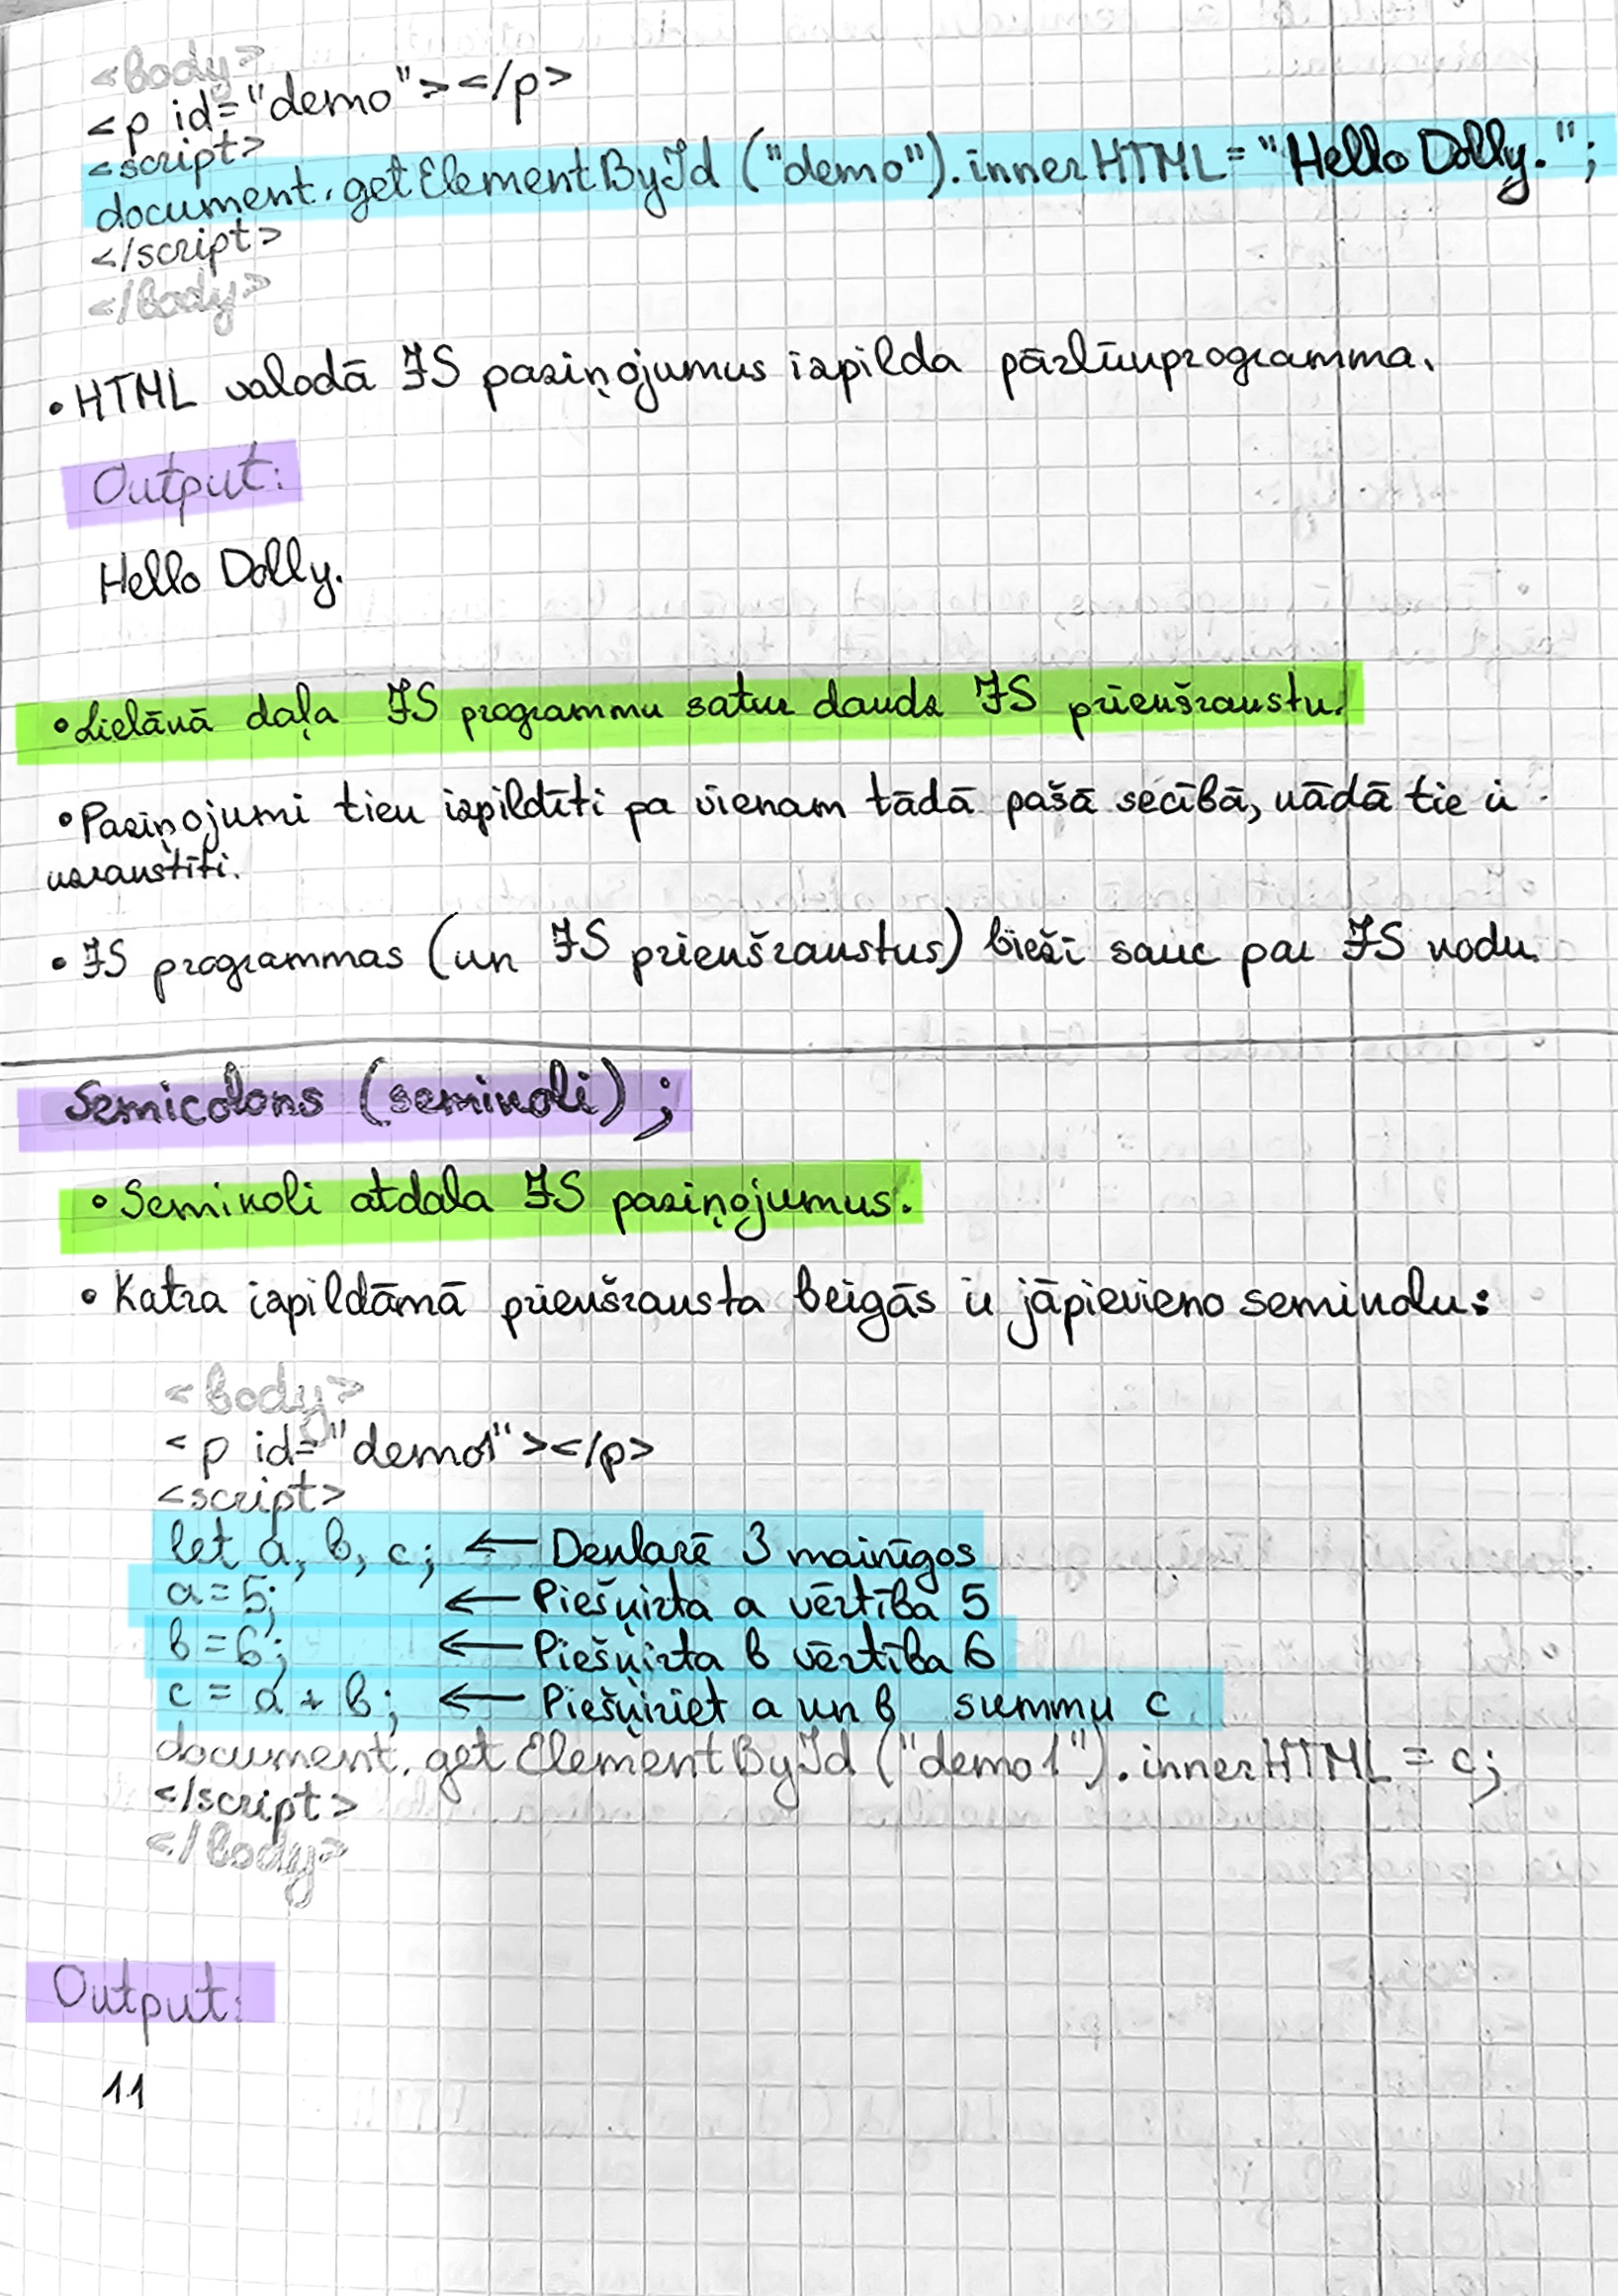 <body>
<p id="demo"></p>
<script>
document.getElementById ("demo").innerHTML = "Hello Dolly.";
</script>
</body>
• HTML valodā JS paziņojumus izpilda pārlūkprogramma.
Output:
Hello Dolly.
• Lielākā daļa JS programmu satur daudz JS priekšrakstu.
• Paziņojumi tiek izpildīti pa vienam tādā pašā secībā, kādā tie ir
uzrakstīti.
• JS programmas (un JS priekšrakstus) bieži sauc par JS kodu.
Semicolons (semikoli) ;
• Semikoli atdala JS paziņojumus.
• Katra izpildāmā priekšraksta beigās ir jāpievieno semikolu:
<body>
<p id="demo1"></p>
<script>
let a, b, c; ← Deklarē 3 mainīgos
a = 5; ← Piešķirta a vērtība 5
b = 6; ← Piešķirta b vērtība 6
c = a + b; ← Piešķiriet a un b summu c
document.getElementById ("demo1").innerHTML = c;
</script>
</body>
Output:
11